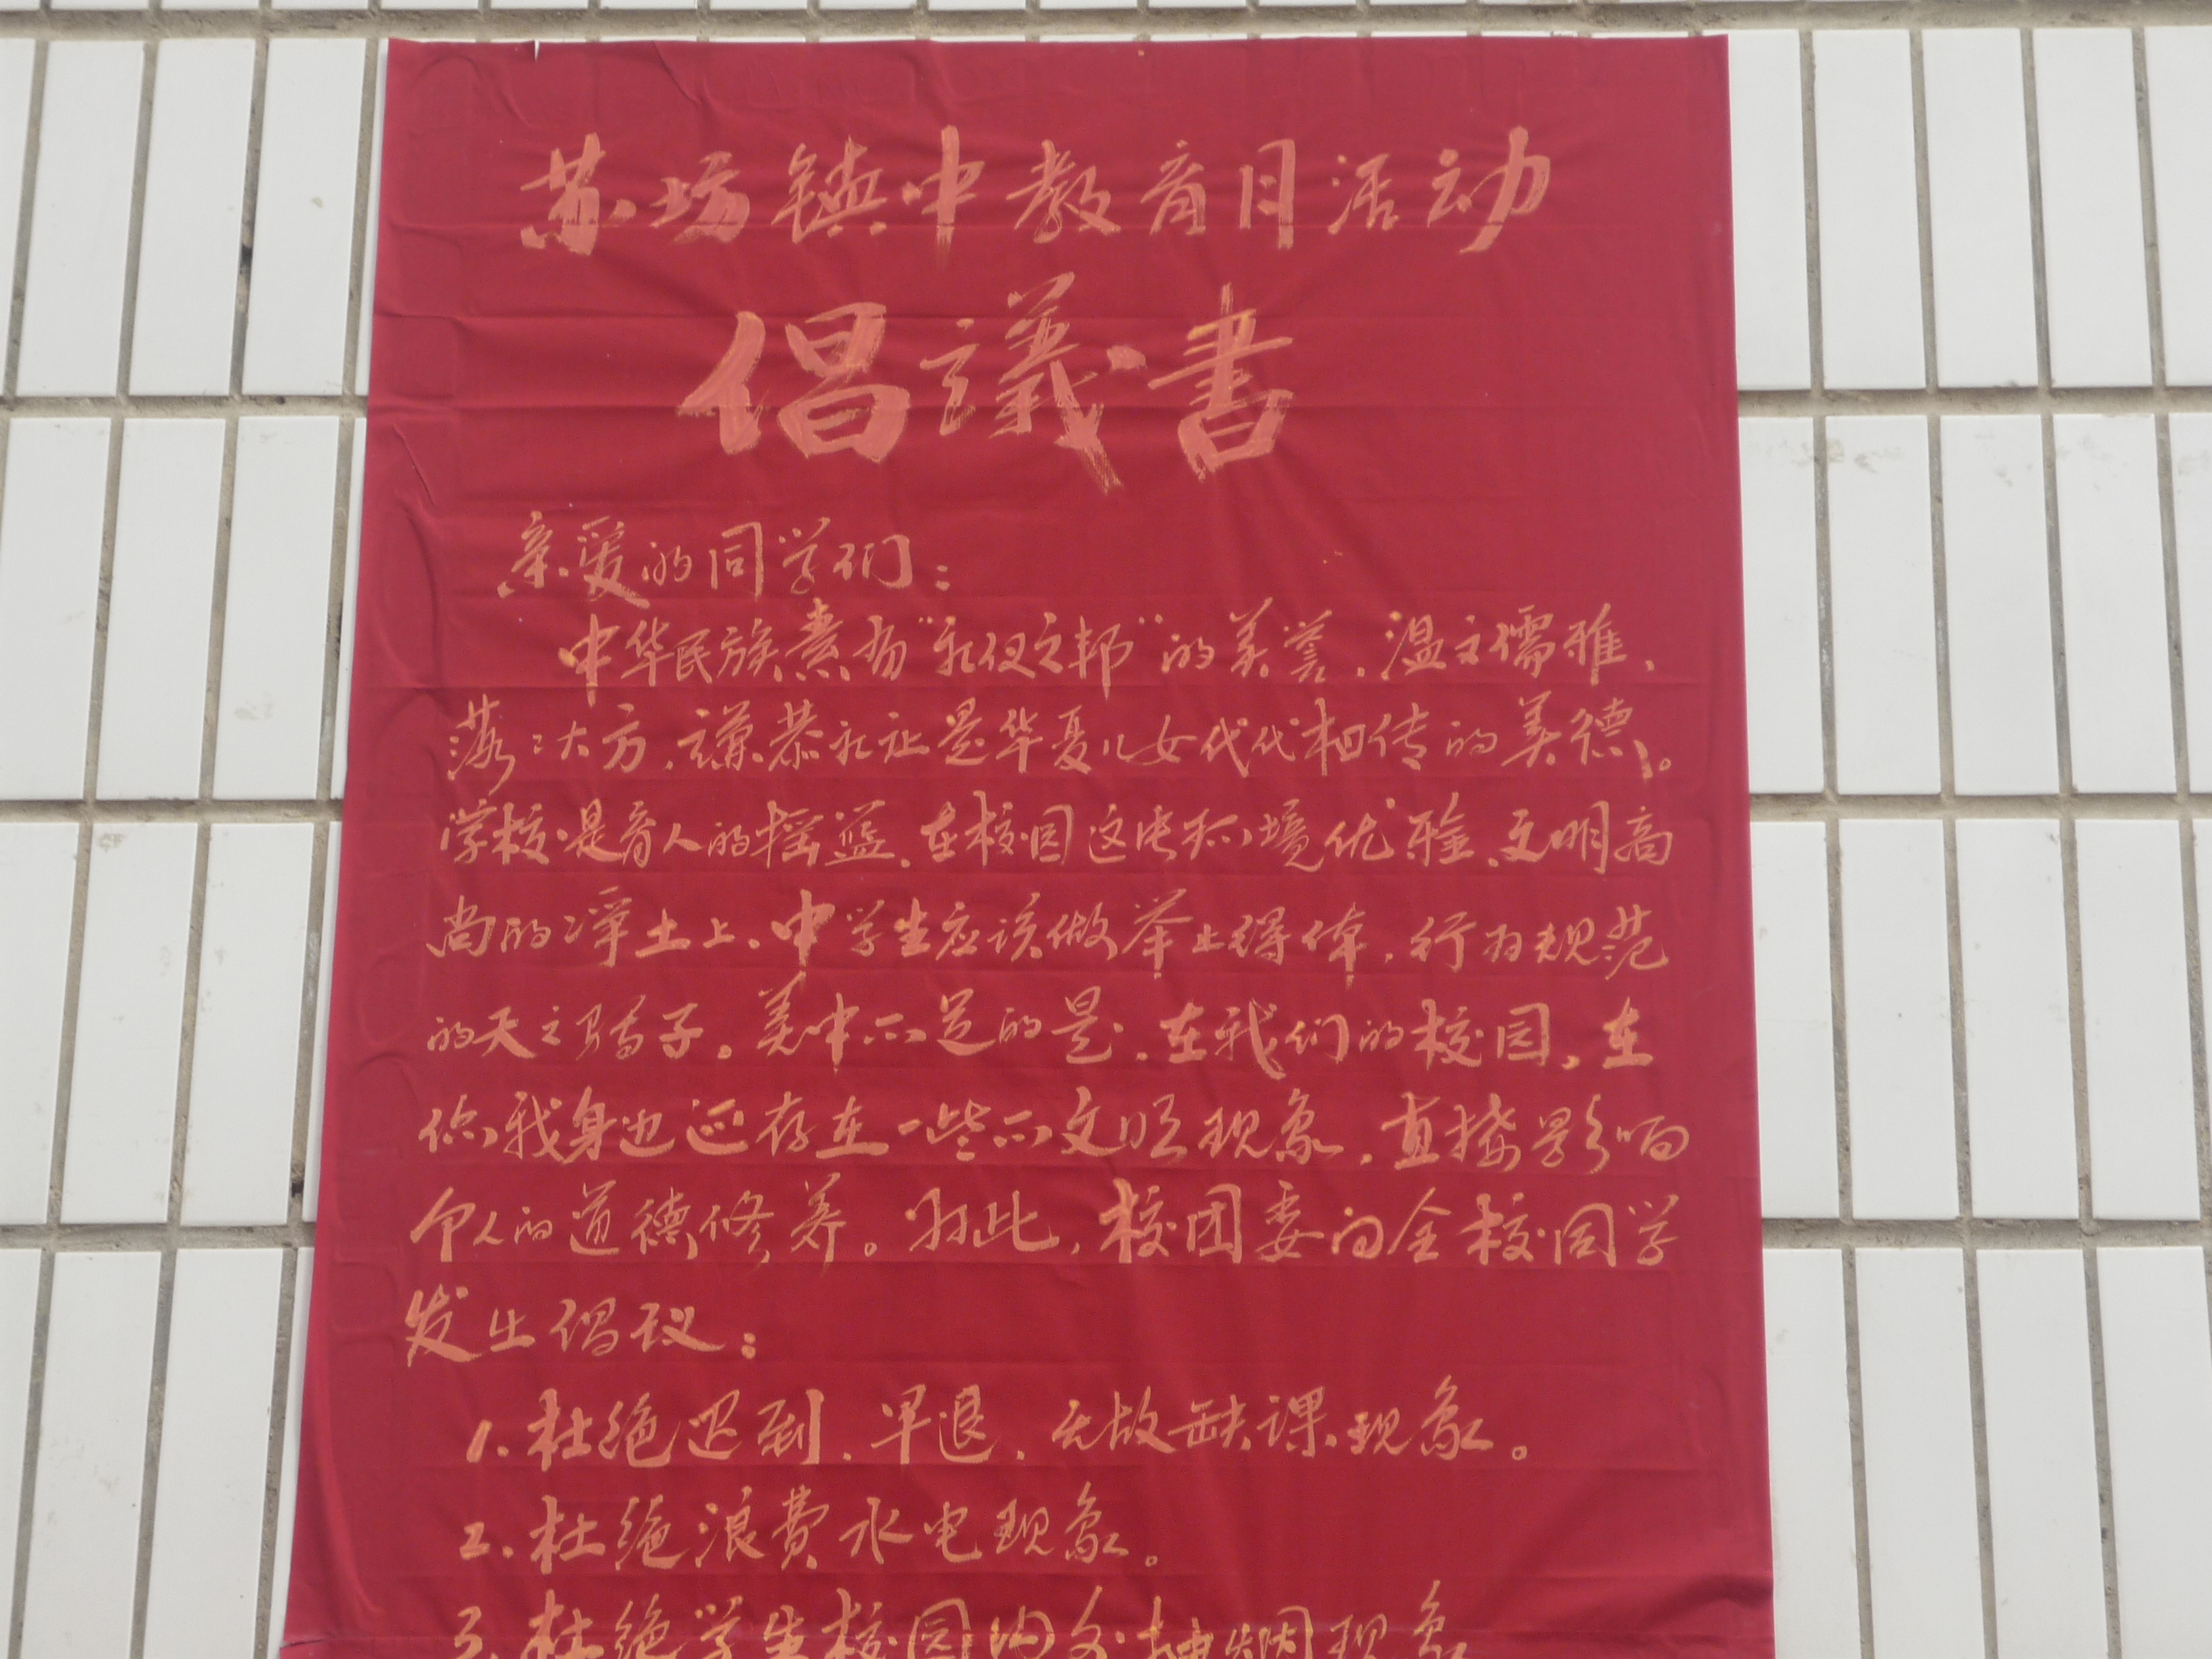 苏坊镇中教育月活动
倡議書
亲爱的同学们：
中华民族素有“礼仪之邦”的美誉，温文儒雅、
落落大方、谦恭礼让是华夏儿女代代相传的美德。
学校是育人的摇篮，在校园这块环境优雅、文明高
尚的净土上，中学生应该做举止得体，行为规范
的天之骄子。美中不足的是，在我们的校园，在
你我身边还存在一些不文明现象，直接影响
个人的道德修养。对此，校团委向全校同学
发出倡议：
1.杜绝迟到、早退、无故缺课现象。
2.杜绝浪费水电现象。
3.杜绝学生校园内外抽烟现象